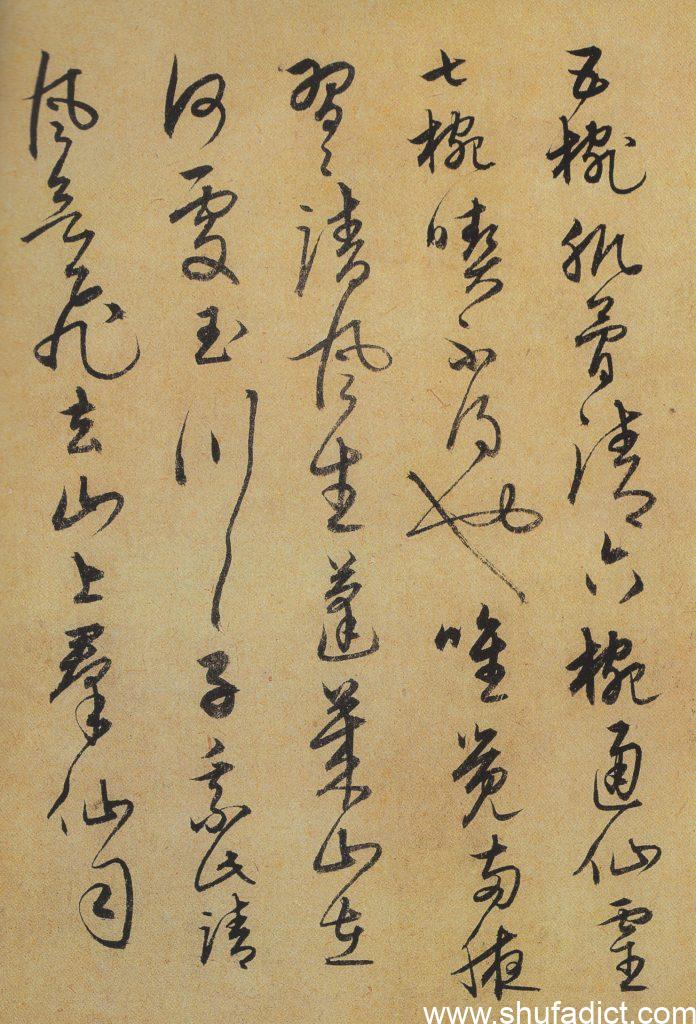 五椀肌骨清六椀通仙靈
七椀喫不得也唯覺兩腋
習〻清風生蓬萊山在
何處玉川子乘此清
風欲飛去山上羣仙司
www.shufadict.com